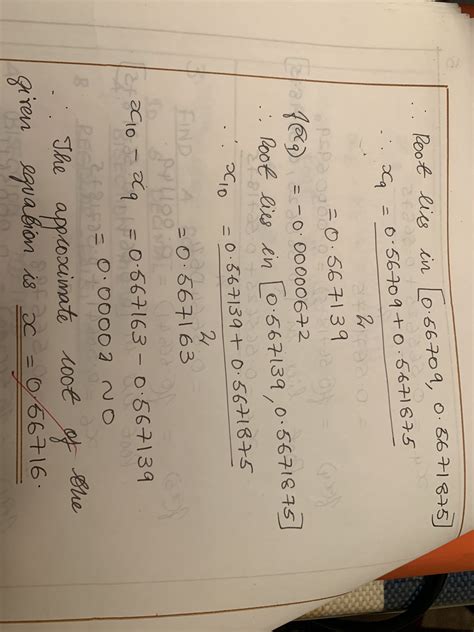 ∴ Root lies in [0.56709, 0.5671875]
∴ x₉ = 0.56709 + 0.5671875
2
= 0.567139
f(x₉) = -0.00000672
∴ Root lies in [0.567139, 0.5671875]
∴ x₁₀ = 0.567139 + 0.5671875
2
= 0.567163
x₁₀ - x₉ = 0.567163 - 0.567139
= 0.00002 ~ 0
∴ The approximate root of the
given equation is x = 0.56716.